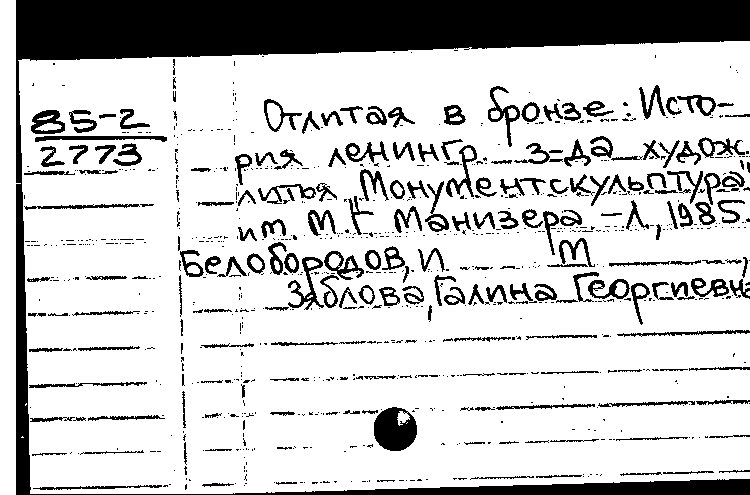 85-2
2773
Отлитая в бронзе: Исто-
рия ленингр. з-да худож.
литья "Монументскульптура"
им. М.Г. Манизера. - Л, 1985.
Белобородов, И М ,
Зяблова, Галина Георгиевна